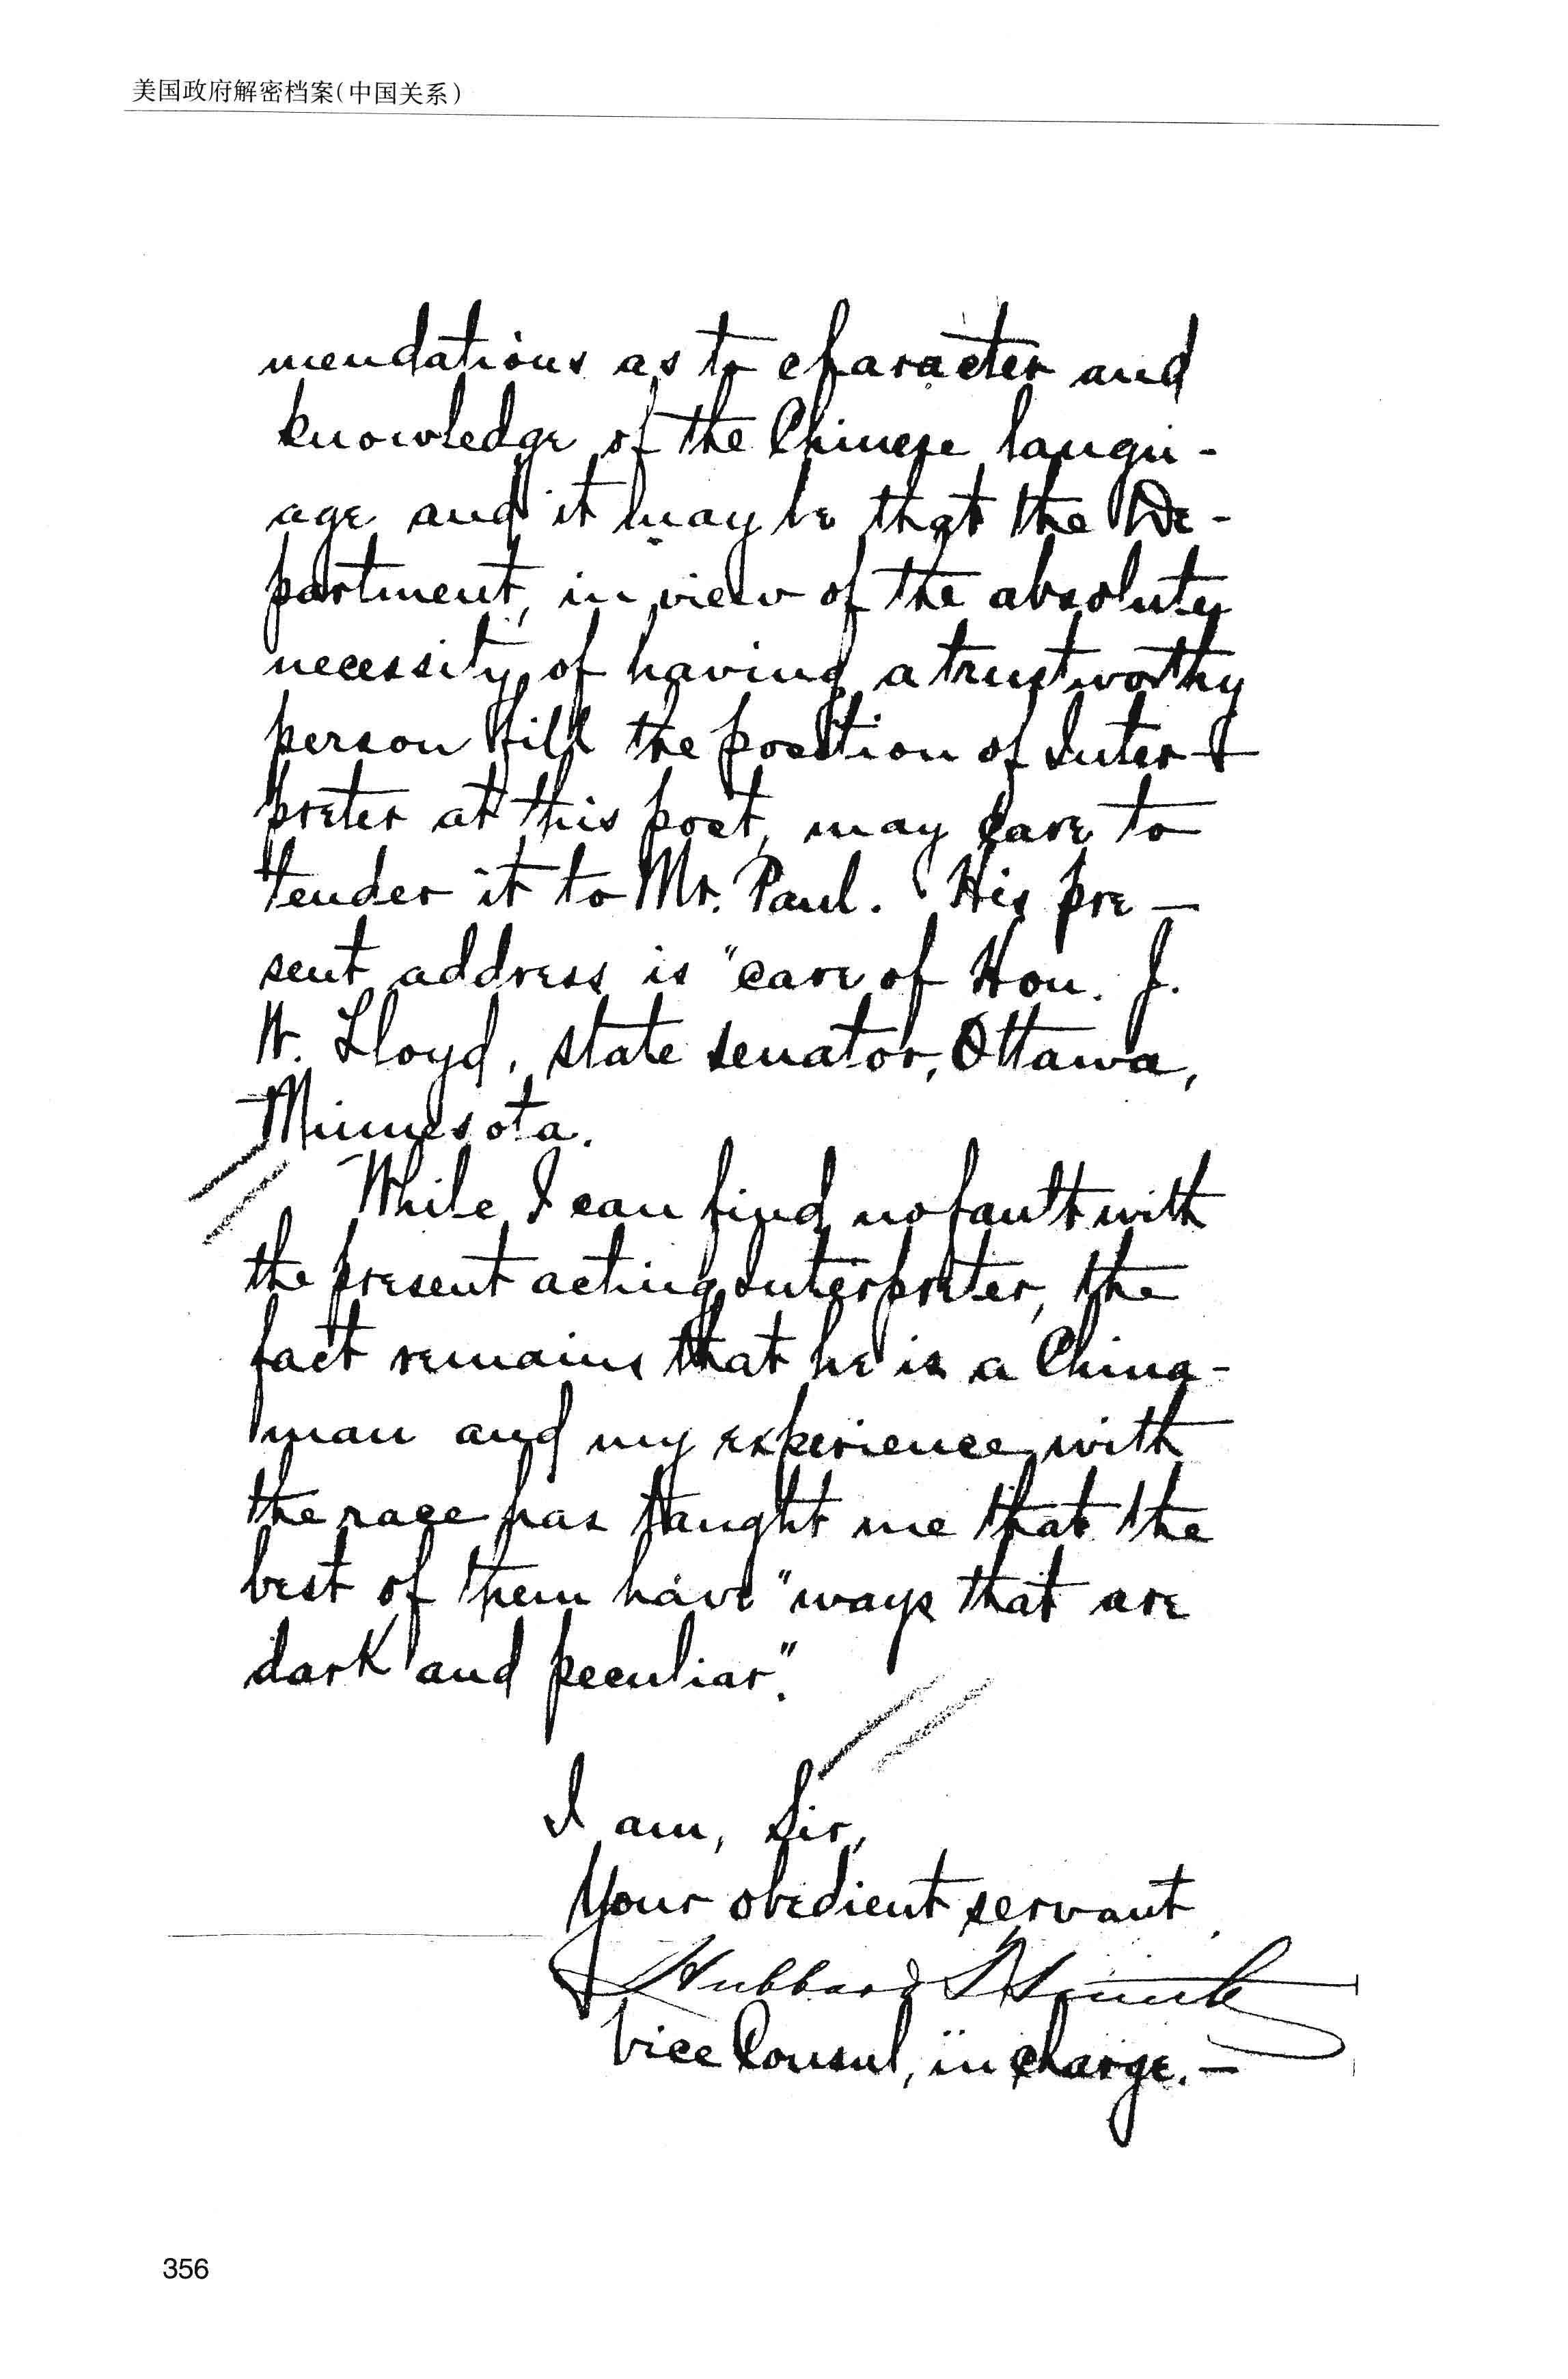 美国政府解密档案(中国关系)
mendations as to character and
knowledge of the Chinese langu-
age and it may be that the De-
partment, in view of the absolute
necessity of having a trustworthy
person fill the position of Inter-
preter at this post, may care to
tender it to Mr. Paul. His pre-
sent address is "care of Hon. J.
W. Lloyd, state senator, Ottawa,
Minnesota.
While I can find no fault with
the present acting interpreter, the
fact remains that he is a China-
man and my experience with
the race has taught me that the
best of them have "ways that are
dark and peculiar."
I am, Sir,
Your obedient servant
Hubbard T. Smith
Vice Consul, in charge.-
356